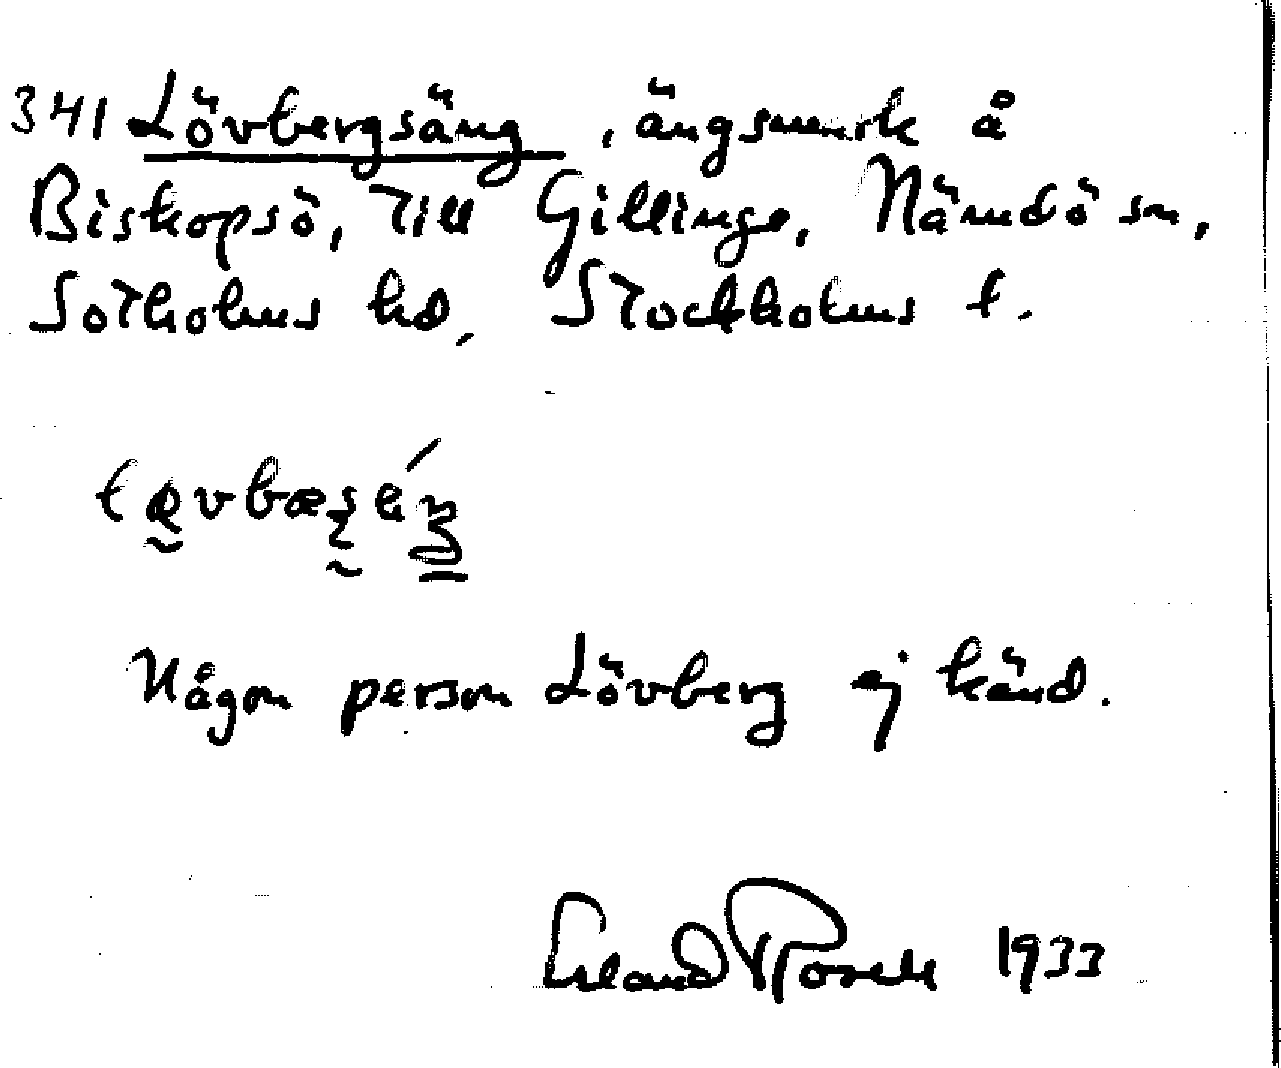 341 Lövbergsäng, ängsmark å
Biskopsö, till Gillinge, Nämdö sn,
Sotholms hd, Stockholms l.
Någon person Lövberg ej känd.
Erland Rosell 1933